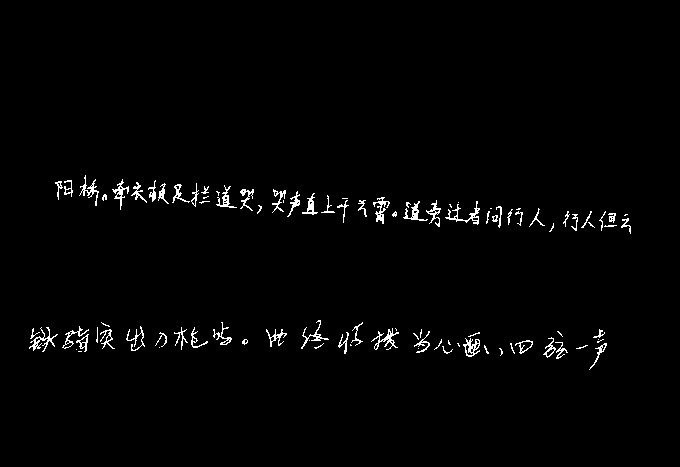 阳桥。牵衣顿足拦道哭，哭声直上干云霄。道旁过者问行人，行人但云
铁骑突出刀枪鸣。曲终收拨当心画，四弦一声